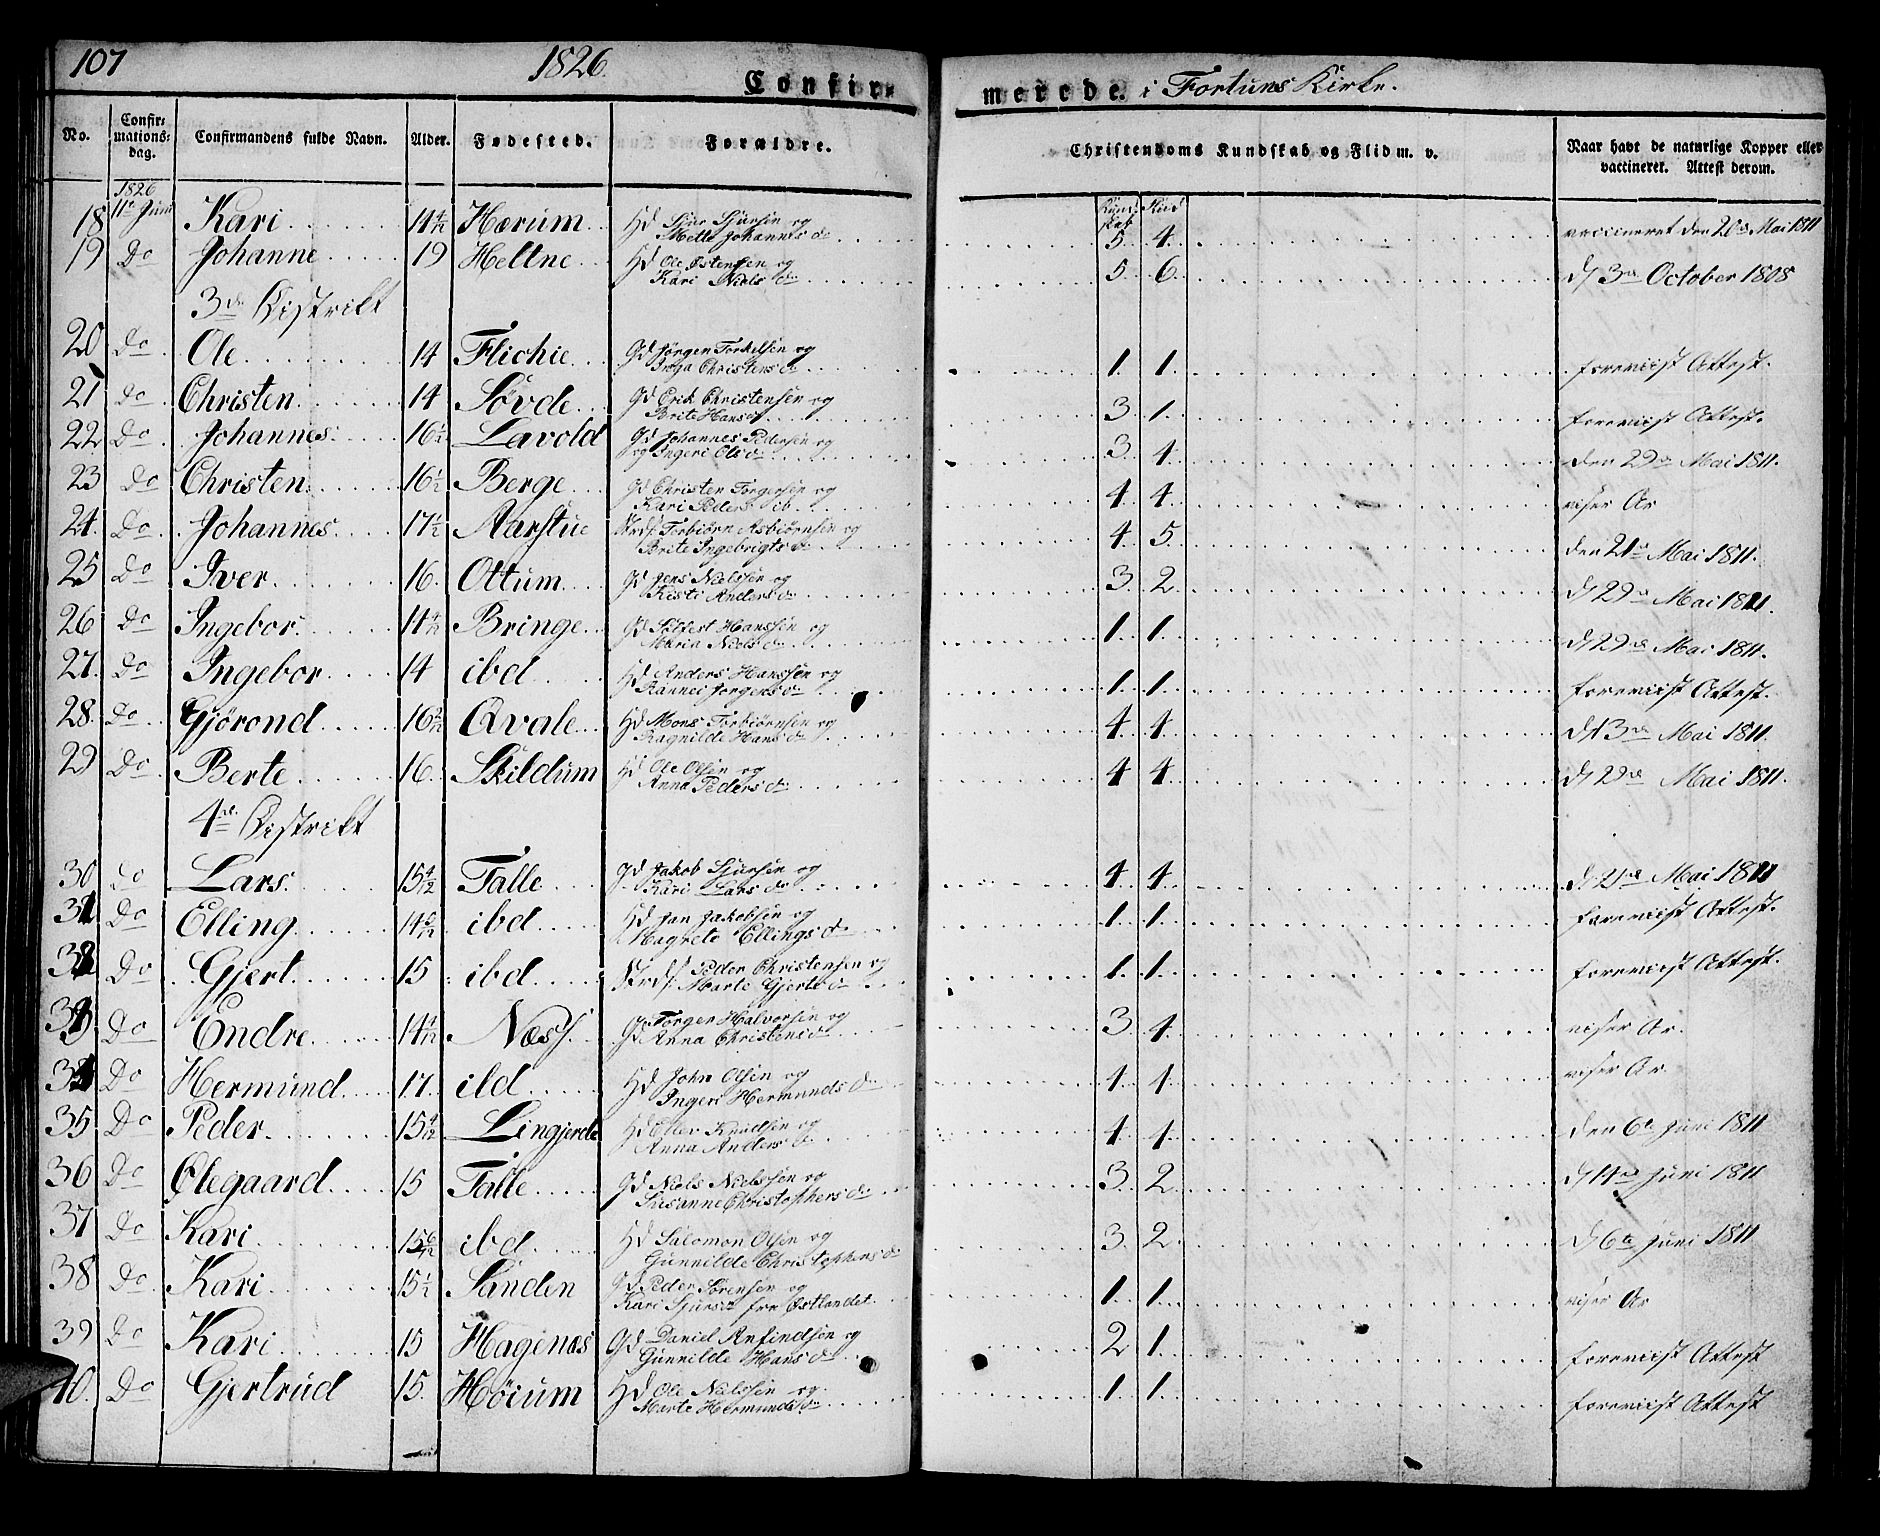 107 1826. Confirmerede. i Fortuns Kirke.
No. Confirmations-dag. Confirmandens fulde Navn. Alder. Fødested. Forældre. Christendoms Kundskab og Flid m. v. Naar havt de naturlige Kopper eller vaccineret. Attest derom.
1826
18 11te Juni Kari 14 4/12 Hærum Hd Siur Siursen og Mette Johannes d. 5. 4. vaccineret den 20de Mai 1811
19 Do Johanne 19 Heltne Hd Ole Østensen og Kari Niels d. 5. 6. d 3de October 1808
3de Distrikt
20 Do Ole 14 Flichie Gd Jørgen Torkelsen og Inga Christens d. 1. 1. foreviist Attest.
21 Do Christen 14 Søvde Gd Erik Christensen og Brite Hans d 3. 1. foreviist Attest.
22 Do Johannes 16 1/2 Lavold Gd Johannes Pedersen og og Ingeri Ols d. 3. 4. den 29de Mai 1811.
23 Do Christen 16 1/2 Berge Gd Christen Torgersen og Kari Peders ib. 4. 4. viser Ar
24. Do Johannes 17 1/2 Aarstue Torbiørn Asbiørnsen og Brite Ingebrigts d. 4. 5. den 21de Mai 1811.
25 Do Iver 16. Ottum Gd Jens Nielssen og Kisti Anders d 3. 2. d 29de Mai 1811.
26 Do Ingebor 14 4/12 Bringe Gd Silfest Hanssen og Maria Niels d. 1. 1. d 29de Mai 1811.
27. Do Ingebor 14 ibd Hd Anders Hanssen og Rannei Jørgens d. 1. 1. foreviist Attest.
28. Do Gjørond 16 2/12 Qvale Hd Mons Torbiørnsen og Ragnilde Hans d 4. 4. d 13de Mai 1811.
29 Do Berte 16. Skildum Hd Ole Olsen og Anna Peders d. 4 4. d 29de Mai 1811.
4de Distrikt
30 Do Lars 15 4/12 Talle Gd Jakob Siursen og Kari Lars d. 4. 4. d 21de Mai 1811
31 Do Elling ibd Hd Jan Jakobsen og Magrete Ellings d. 1. 1. foreviist Attest.
32 Do Gjert 15 ibd Peder Christensen og Marte Gjerts d 1. 1. foreviist Attest.
33 Do Endre 14 4/12 Næss Gd Torger Halvorsen og Anna Christens d 3. 4. viser Ar.
34 Do Hermund 17. ibd Hd John Olsen og Ingeri Hermunds d. 4. 4. viser Ar.
35 Do Peder 15 4/12 Lingjerde Hd Eller Knudsen og Anna Anders d. 4. 4. den 6te Juni 1811
36 Do Olegaard 15 Talle Gd Niels Nielssen og Susanne Christophers d. 3 2. d 14de Juni 1811
37 Do Kari 15 6/12 ibd Hd Salomon Olsen og Gunnilde Christophers d 3. 2. d 6te Juni 1811
38 Do Kari Sanden Gd Peder Sørensen og Kari Sjurs d fra Østlandet. 1. 1. viser Ar
39 Do Kari 15 Hagenæs Gd Daniel Anfindsen og Gunnilde Hans d 2 1. foreviist Attest
40. Do Gjertrud 15. Høium Hd Ole Nielssen og Marte Hermunds d. 1 1. foreviist Attest